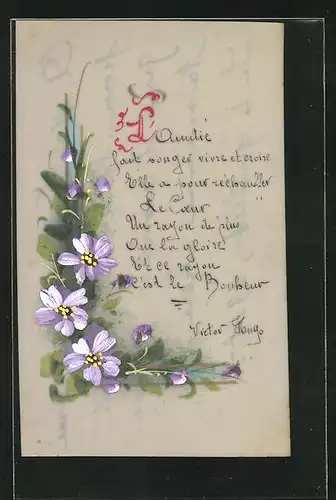 L'Amitié
fait songer vivre et croire
Elle a pour réchauffer
Le Cœur
Un rayon de plus
Que la gloire
Et ce rayon
C'est le Bonheur
Victor Hugo